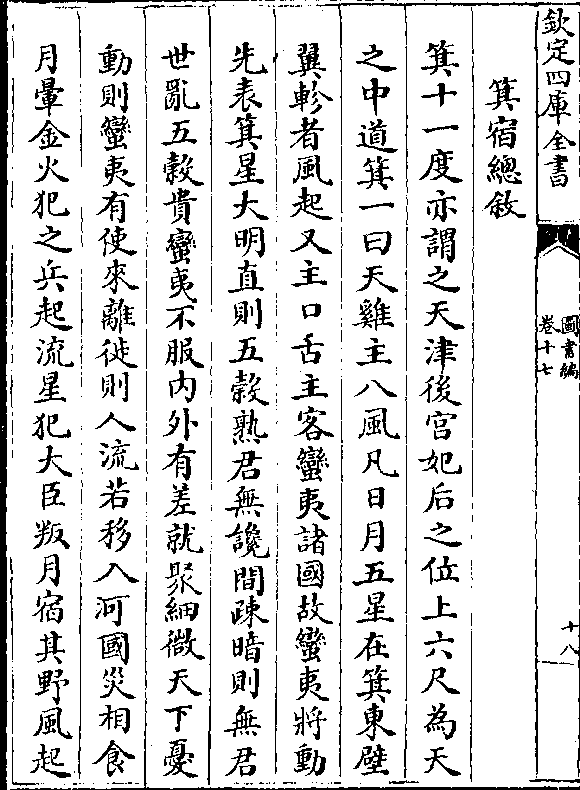 欽定四庫全書
圖書編
卷十七
十八
箕宿總敘
箕十一度亦謂之天津後宮妃后之位上六尺為天
之中道箕一曰天雞主八風凡日月五星在箕東壁
翼軫者風起又主口舌主客蠻夷諸國故蠻夷將動
先表箕星大明直則五穀熟君無讒間疎暗則無君
世亂五穀貴蠻夷不服內外有差就聚細微天下憂
動則蠻夷有使來離徙則人流若移入河國災相食
月暈金火犯之兵起流星犯大臣叛月宿其野風起